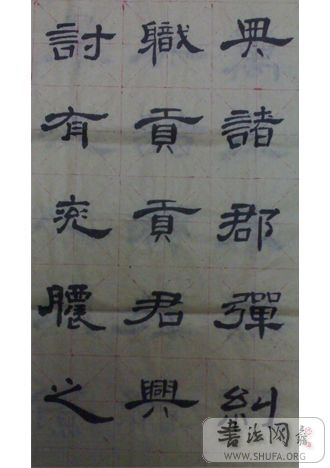 典諸郡彈糾
職貢貢君興
討有兗膿之
書法网
WWW.SHUFA.ORG